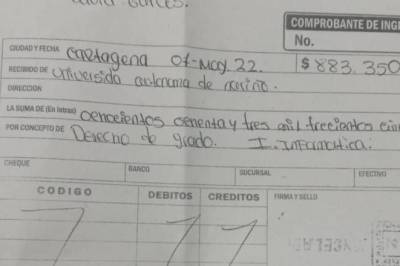 COMPROBANTE DE ING
No.
CIUDAD Y FECHA Cartagena 07-May. 22.
$ 883.350
RECIBIDO DE Universida autonoma de nariño.
DIRECCION
LA SUMA DE (En letras) ochocientos ochenta y tres mil trecientos cin
POR CONCEPTO DE Derecho de grado. I. Informatica.
CHEQUE BANCO SUCURSAL EFECTIVO
CODIGO DEBITOS CREDITOS FIRMA Y SELLO